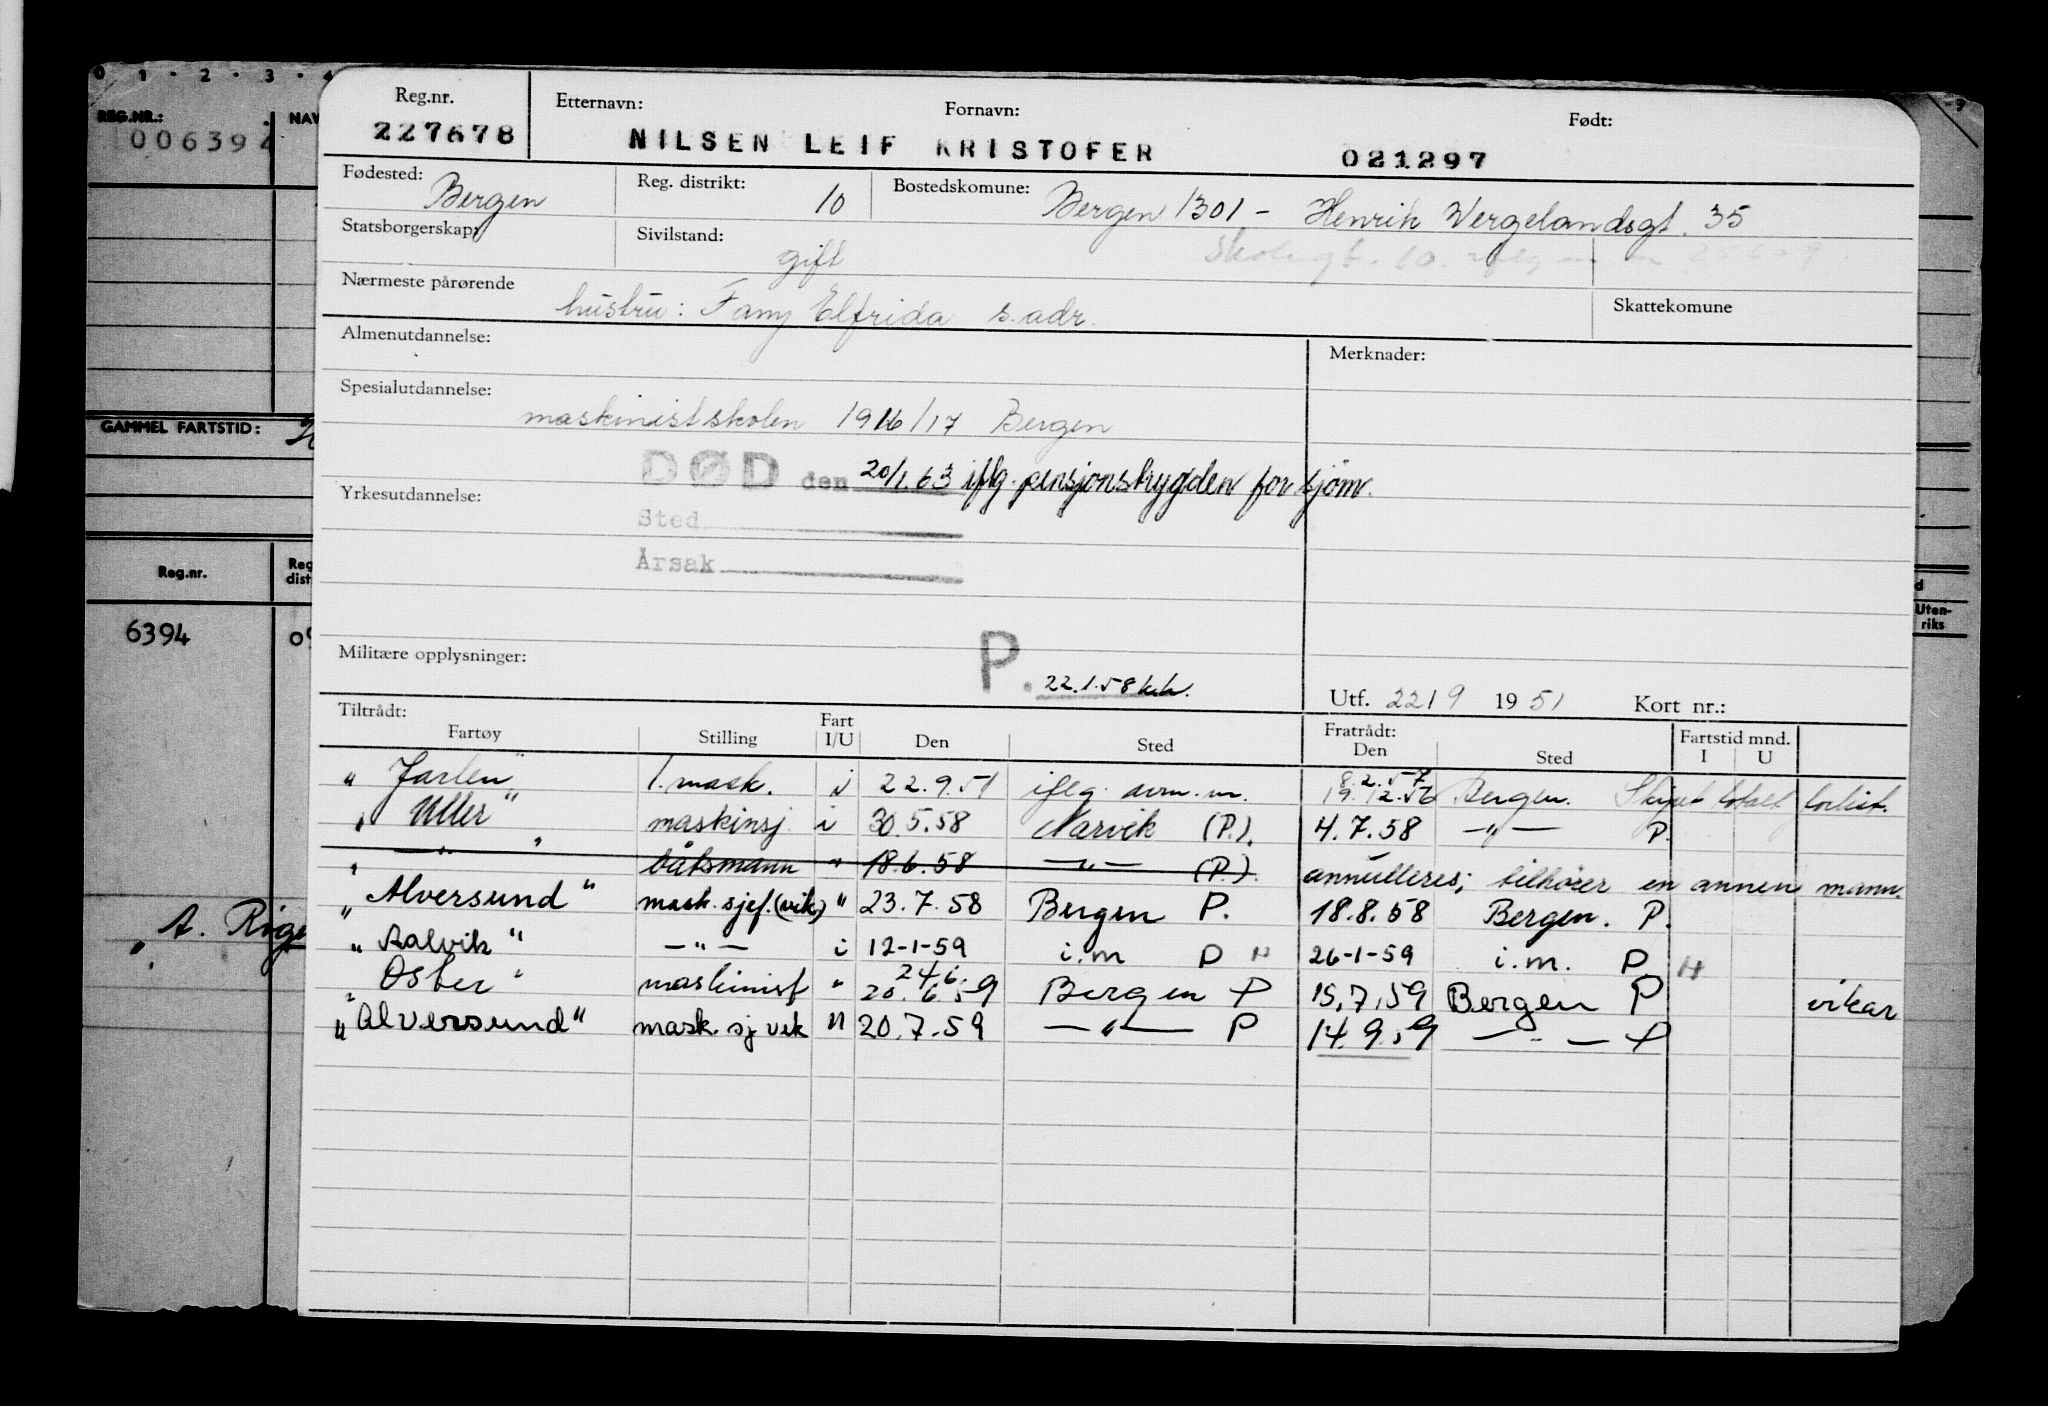 0 1 · 2 · 3 · 4
REG.NR.: NAV
006394
GAMMEL FARTSTID:
Reg.nr. Reg dist
6394 09
" A. Roge
Uten-riks
Reg.nr. Etternavn: Fornavn: Født:
227678 NILSEN LEIF KRISTOFER 021297
Fødested: Bergen Reg. distrikt: 10 Bostedskomune: Bergen 1301 - Henrik Wergelandsgt. 35
Statsborgerskap: Sivilstand: gift Skolegt. 10.
Nærmeste pårørende hustru: Fanny Elfrida s. adr. Skattekomune
Almenutdannelse: Merknader:
Spesialutdannelse: maskinistskolen 1916/17 Bergen
DØD den 20/1.63 iflg. pensjonstrygden for sjøm.
Yrkesutdannelse:
Sted
Årsak
Militære opplysninger: P. 22.1.58
Utf. 22/9 1951 Kort nr.:
Tiltrådt: Fratrådt: Fartstid mnd.
Fartøy Stilling Fart I/U Den Sted Den Sted I U
" Jarlen" 1. mask. i 22.9.51 iflg. 8.2.57 19.12.56 Bergen. Skipet totalt forlist.
" Uller" maskinsj. i 30.5.58 Narvik (P.). 4.7.58 —"— P.
" —"— " båtsmann " 18.6.58 —"— (P.). annulleres; tilhører en annen mann.
" Alversund" mask.sjef.(vik.) " 23.7.58 Bergen P. 18.8.58 Bergen. P.
" Aalvik" —"— i 12-1-59 i.m P H 26-1-59 i.m. P H
" Oster" maskinist " 24/6. 20.6.59 Bergen P 15.7.59 Bergen P vikar
" Alversund" mask. sj vik " 20.7.59 —"— P 14.9.59 —"— P